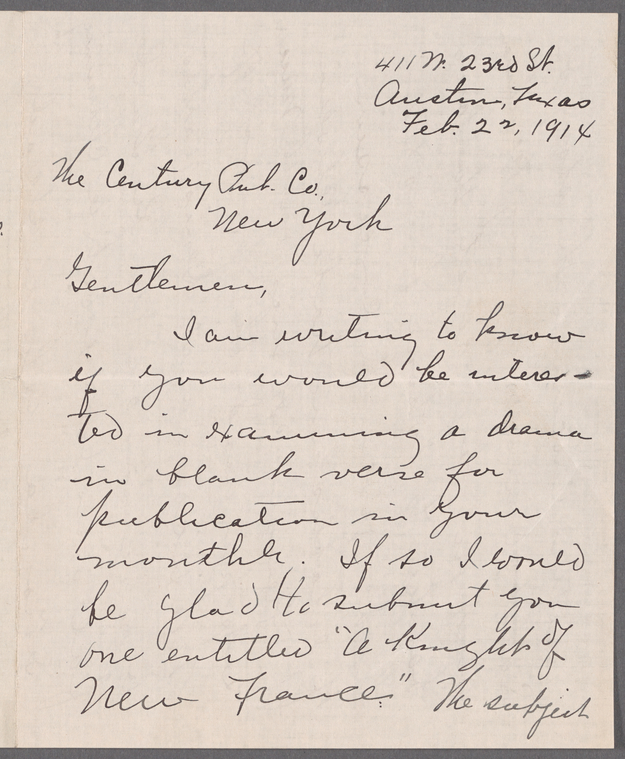 411 W. 23rd St.
Austin, Texas
Feb. 22, 1914
The Century Pub. Co.,
New York
Gentlemen,
I am writing to know
if you would be interes-
ted in examining a drama
in blank verse for
publication in your
monthly. If so I would
be glad to submit you
one entitled "A Knight of
New France." The subject